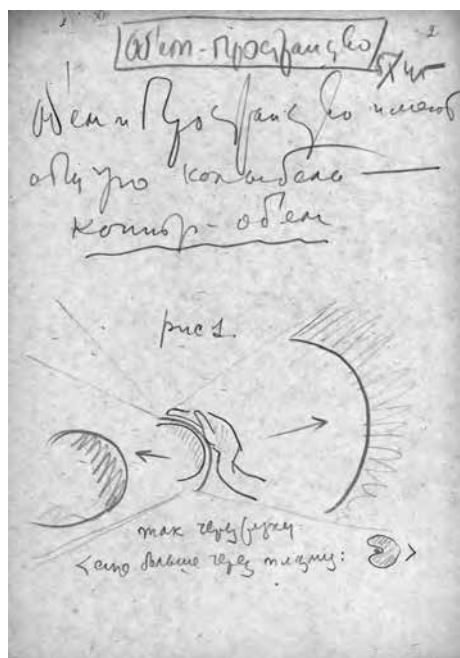 2
Объем-пространство
Объем и Пространство имеют
общую колыбель —
контр-объем
рис 1.
так через руки
<еще больше через плазму: >